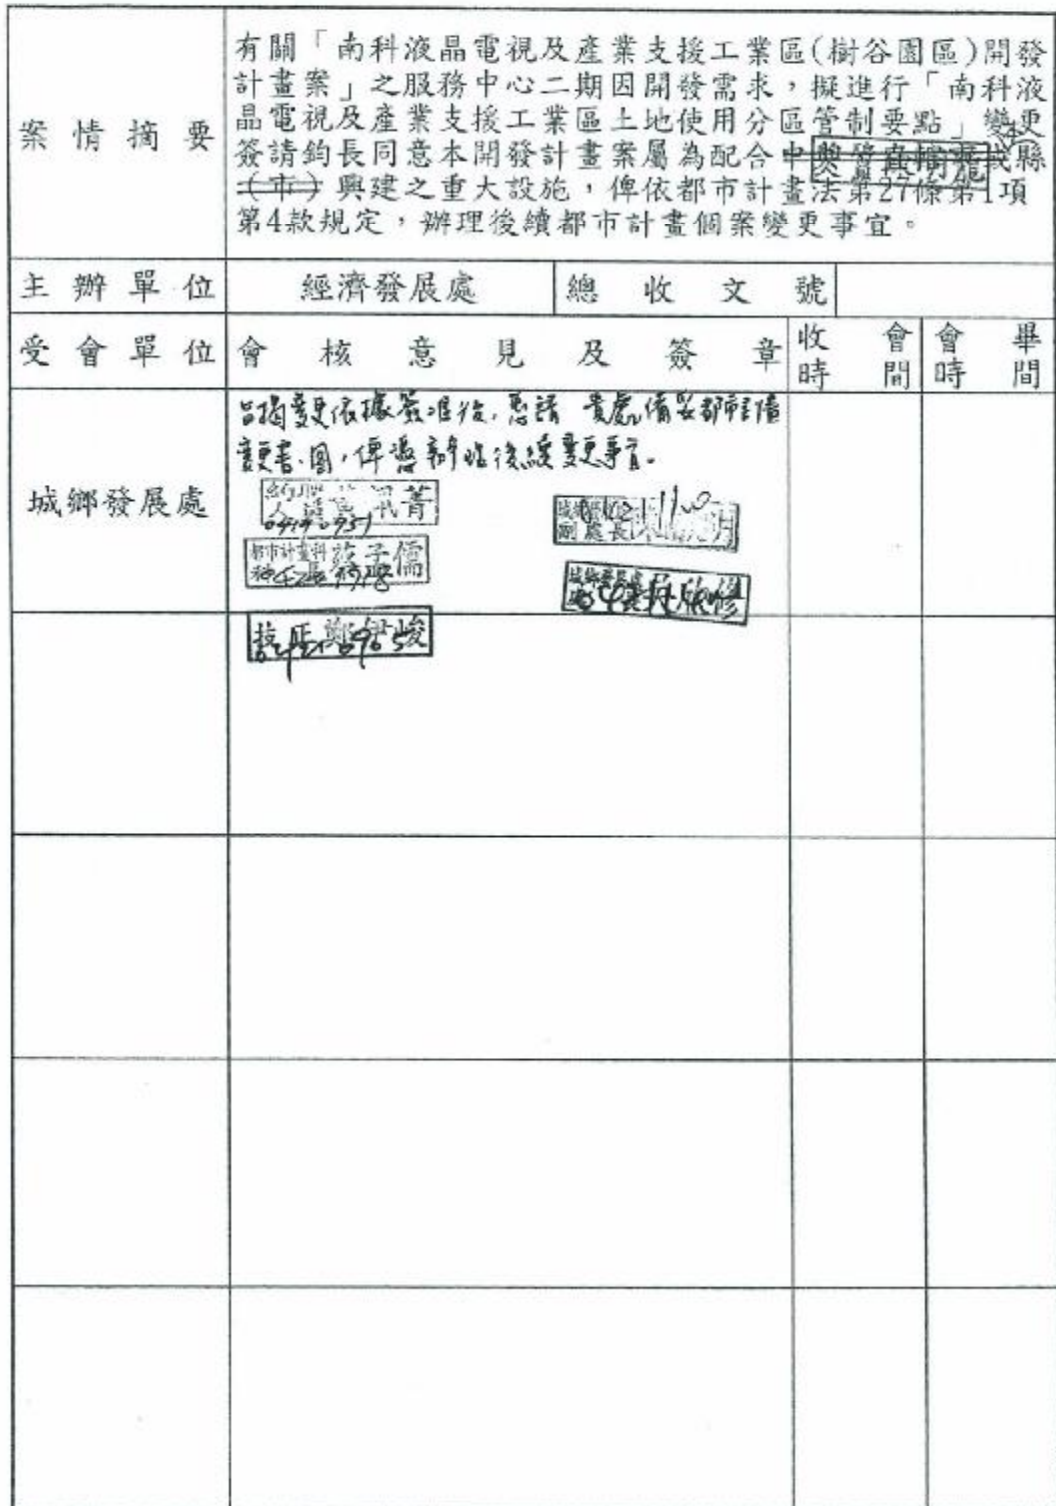 案情摘要
有關「南科液晶電視及產業支援工業區(樹谷園區)開發
計畫案」之服務中心二期因開發需求，擬進行「南科液
晶電視及產業支援工業區土地使用分區管制要點」變更
簽請鈞長同意本開發計畫案屬為配合中 縣
(市) 興建之重大設施，俾依都市計畫法第27條第1項
第4款規定，辦理後續都市計畫個案變更事宜。
主辦單位 經濟發展處 總收文號
受會單位 會核意見及簽章 收會時間 會畢時間
城鄉發展處
旨揭變更依據簽准後，惠請 貴處備妥都市計畫
變更書、圖，俾憑辦理後續變更事宜。
菁
0951
副處長
都市計畫科 子儒